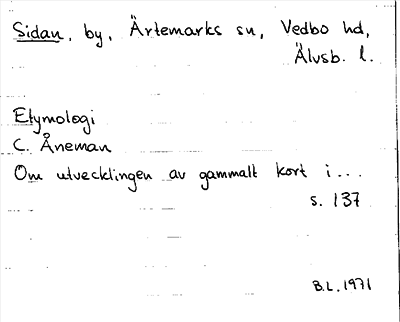 Sidan, by, Ärtemarks sn, Vedbo hd,
Älvsb. l.
Etymologi
C. Åneman
Om utvecklingen av gammalt kort i...
s. 137
B.L. 1971